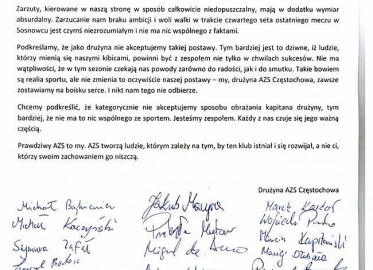 Zarzuty, kierowane w naszą stronę w sposób całkowicie niedopuszczalny, mają w dodatku wymiar
absurdalny. Zarzucanie nam braku ambicji i woli walki w trakcie czwartego seta ostatniego meczu w
Sosnowcu jest czymś niezrozumiałym i nie ma nic wspólnego z faktami.
Podkreślamy, że jako drużyna nie akceptujemy takiej postawy. Tym bardziej jest to dziwne, iż ludzie,
którzy mienią się naszymi kibicami, powinni być z zespołem nie tylko w chwilach sukcesów. Nie ma
wątpliwości, że w tym sezonie czekają nas powody zarówno do radości, jak i do smutku. Takie bowiem
są realia sportu, ale nie zmienia to oczywiście naszej postawy – my, drużyna AZS Częstochowa, zawsze
zostawiamy na boisku serce. I nikt nam tego nie odbierze.
Chcemy podkreślić, że kategorycznie nie akceptujemy sposobu obrażania kapitana drużyny, tym
bardziej, że nie ma to nic wspólnego ze sportem. Jesteśmy zespołem. Każdy z nas czuje się jego ważną
częścią.
Prawdziwy AZS to my. AZS tworzą ludzie, którym zależy na tym, by ten klub istniał i się rozwijał, a nie ci,
którzy swoim zachowaniem go niszczą.
Drużyna AZS Częstochowa
Michał
Jakub
Marek
Michał Kaczyński
Wojciech
Miguel de
Marcin